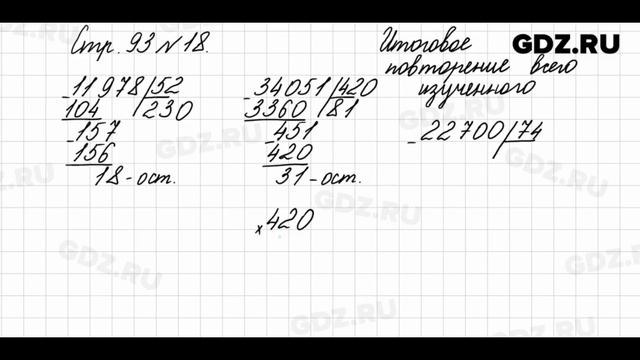 Стр. 93 № 18.
Итоговое повторение всего изученного
GDZ.RU
- 11978 | 52
104 | 230
- 157
156
18 - ост.
- 34051 | 420
3360 | 81
- 451
420
31 - ост.
× 420
- 22700 | 74
GDZ.RU
GDZ.RU
GDZ.RU
GDZ.RU
GDZ.RU